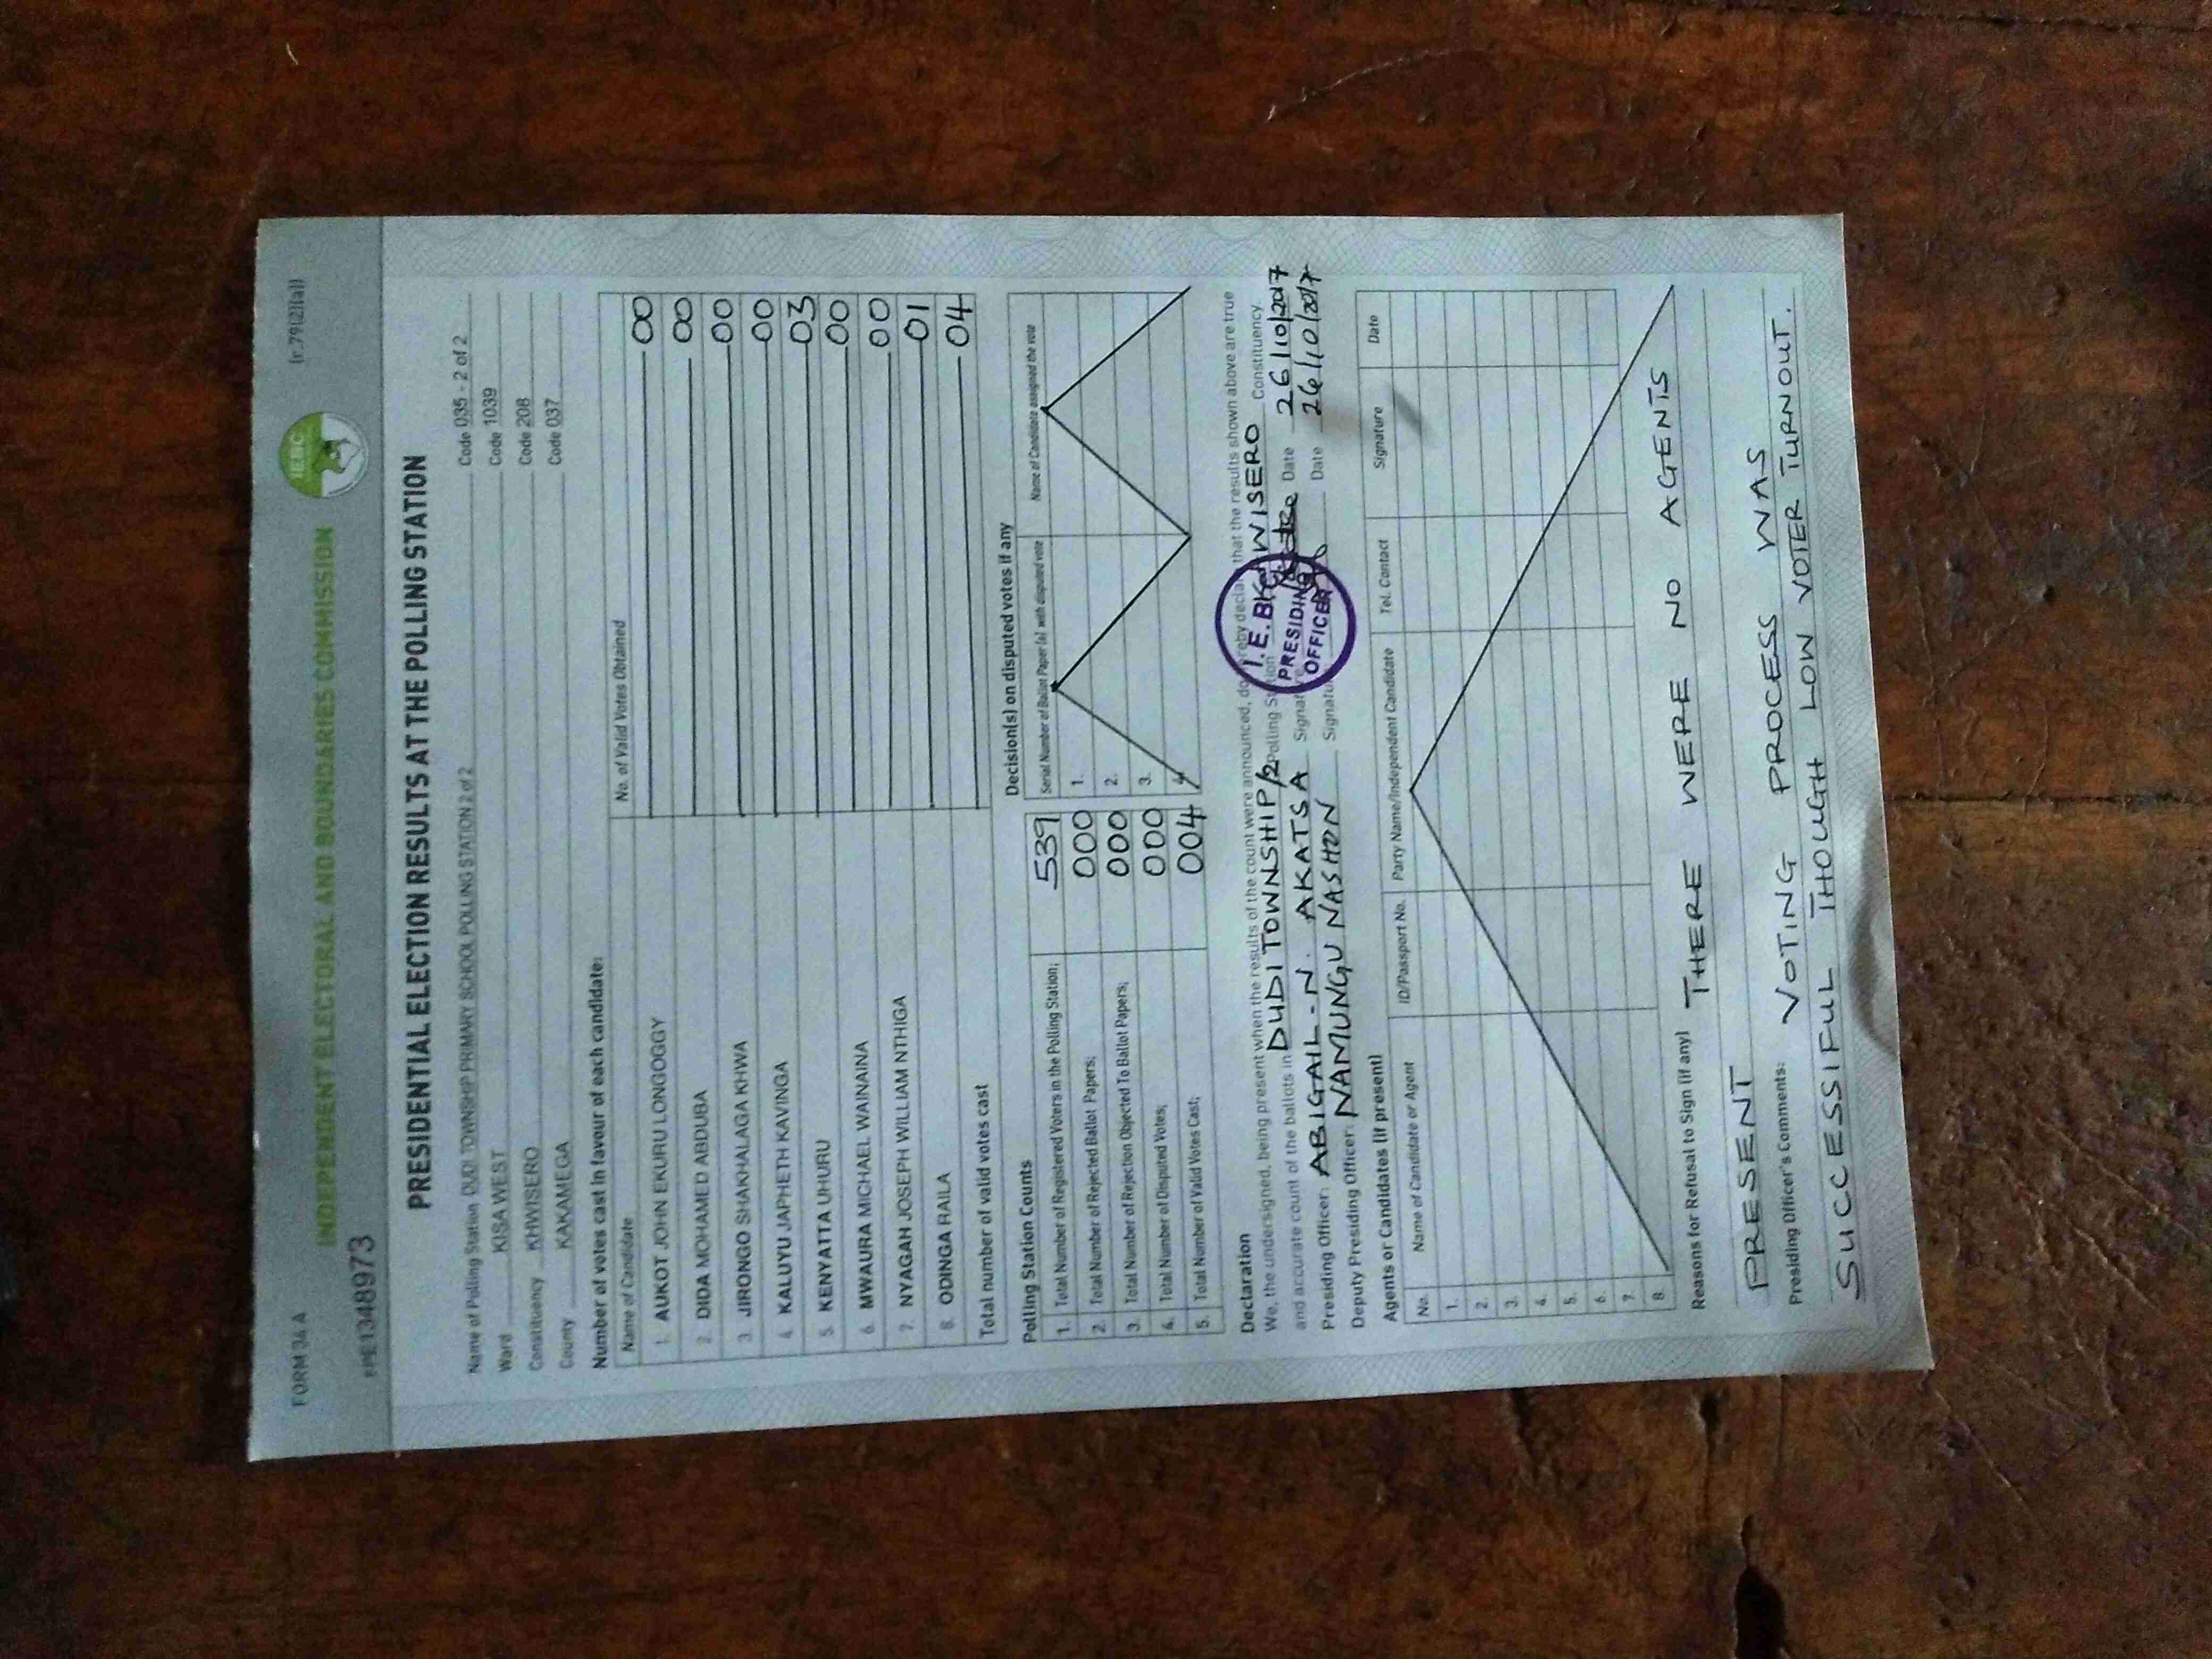 FORM 34 A
(r.79(2)(a))
INDEPENDENT ELECTORAL AND BOUNDARIES COMMISSION
IEBC
PRESIDENTIAL ELECTION RESULTS AT THE POLLING STATION
Name of Polling Station DUDI TOWNSHIP PRIMARY SCHOOL POLLING STATION 2 of 2 Code 035 - 2 of 2
Ward KISA WEST Code 1039
Constituency KHWISERO Code 208
County KAKAMEGA Code 037
Number of votes cast in favour of each candidate:
Name of Candidate No. of Valid Votes Obtained
1. AUKOT JOHN EKURU LONGOGGY 00
2. DIDA MOHAMED ABDUBA 00
3. JIRONGO SHAKHALAGA KHWA 00
4. KALUYU JAPHETH KAVINGA 00
5. KENYATTA UHURU 03
6. MWAURA MICHAEL WAINAINA 00
7. NYAGAH JOSEPH WILLIAM NTHIGA 00
8. ODINGA RAILA 01
Total number of valid votes cast 04
Polling Station Counts
1. Total Number of Registered Voters in the Polling Station; 539
2. Total Number of Rejected Ballot Papers; 000
3. Total Number of Rejection Objected To Ballot Papers; 000
4. Total Number of Disputed Votes; 000
5. Total Number of Valid Votes Cast; 004
Decision(s) on disputed votes if any
Serial Number of Ballot Paper (s) with disputed vote Name of Candidate assigned the vote
1.
2.
3.
4.
Declaration
We, the undersigned, being present when the results of the count were announced, do hereby declare that the results shown above are true
and accurate count of the ballots in DUDI TOWNSHIP/2 Polling Station KHWISERO Constituency.
Presiding Officer: ABIGAIL - N. AKATSA Signature Date 26/10/2017
Deputy Presiding Officer: NAMUNGU NASHON Signature Date 26/10/2017
I.E.B.C
PRESIDING
OFFICER
Agents or Candidates (if present)
No. Name of Candidate or Agent ID/Passport No. Party Name/Independent Candidate Tel. Contact Signature Date
1.
2.
3.
4.
5.
6.
7.
8.
Reasons for Refusal to Sign (if any) THERE WERE NO AGENTS
PRESENT
Presiding Officer's Comments: VOTING PROCESS WAS
SUCCESSIFUL THOUGH LOW VOTER TURNOUT.